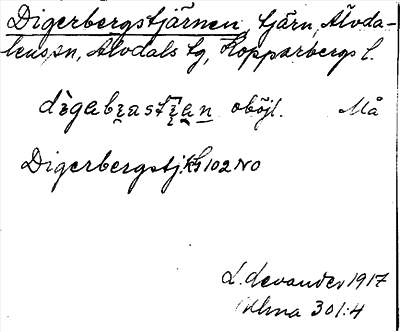 Digerbergstjärnen tjärn, Älvda-
lens sn, Älvdals tg, Kopparbergs l.
oböjl. Må
Digerbergstj. Kg 102 NO
L. Levander 1917
301:4